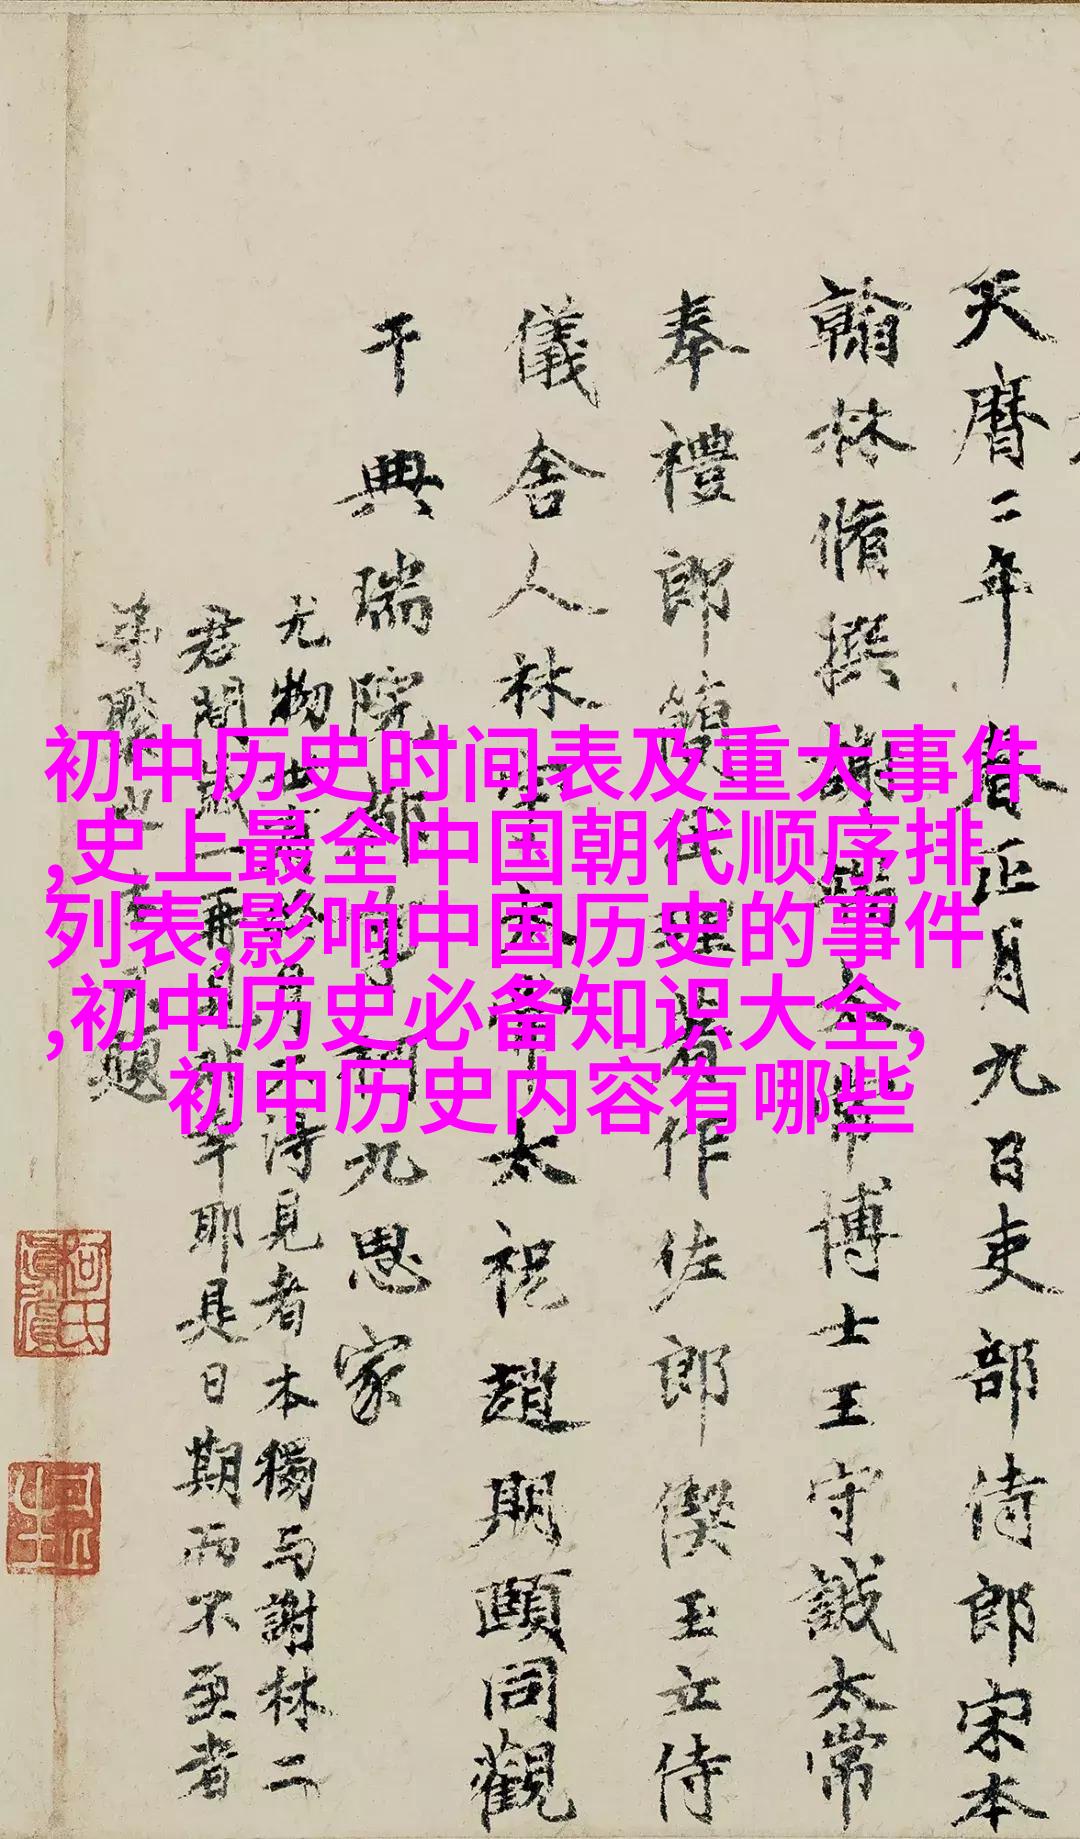 初中历史时间表及重大事件
,史上最全中国朝代顺序排
列表,影响中国历史的事件
,初中历史必备知识大全,
初中历史内容有哪些
天曆二年春正月九日吏部侍郎宋本
翰林脩撰謝端太常博士王守誠太常
奉禮郎簡正理著作佐郎偰玉立侍
儀舍人林宇太常太祝趙期頤同觀
于典瑞院都事柯九思家
尤物世見者本獨与謝林二
君間一再見耶是日期而不至者
題
柯氏